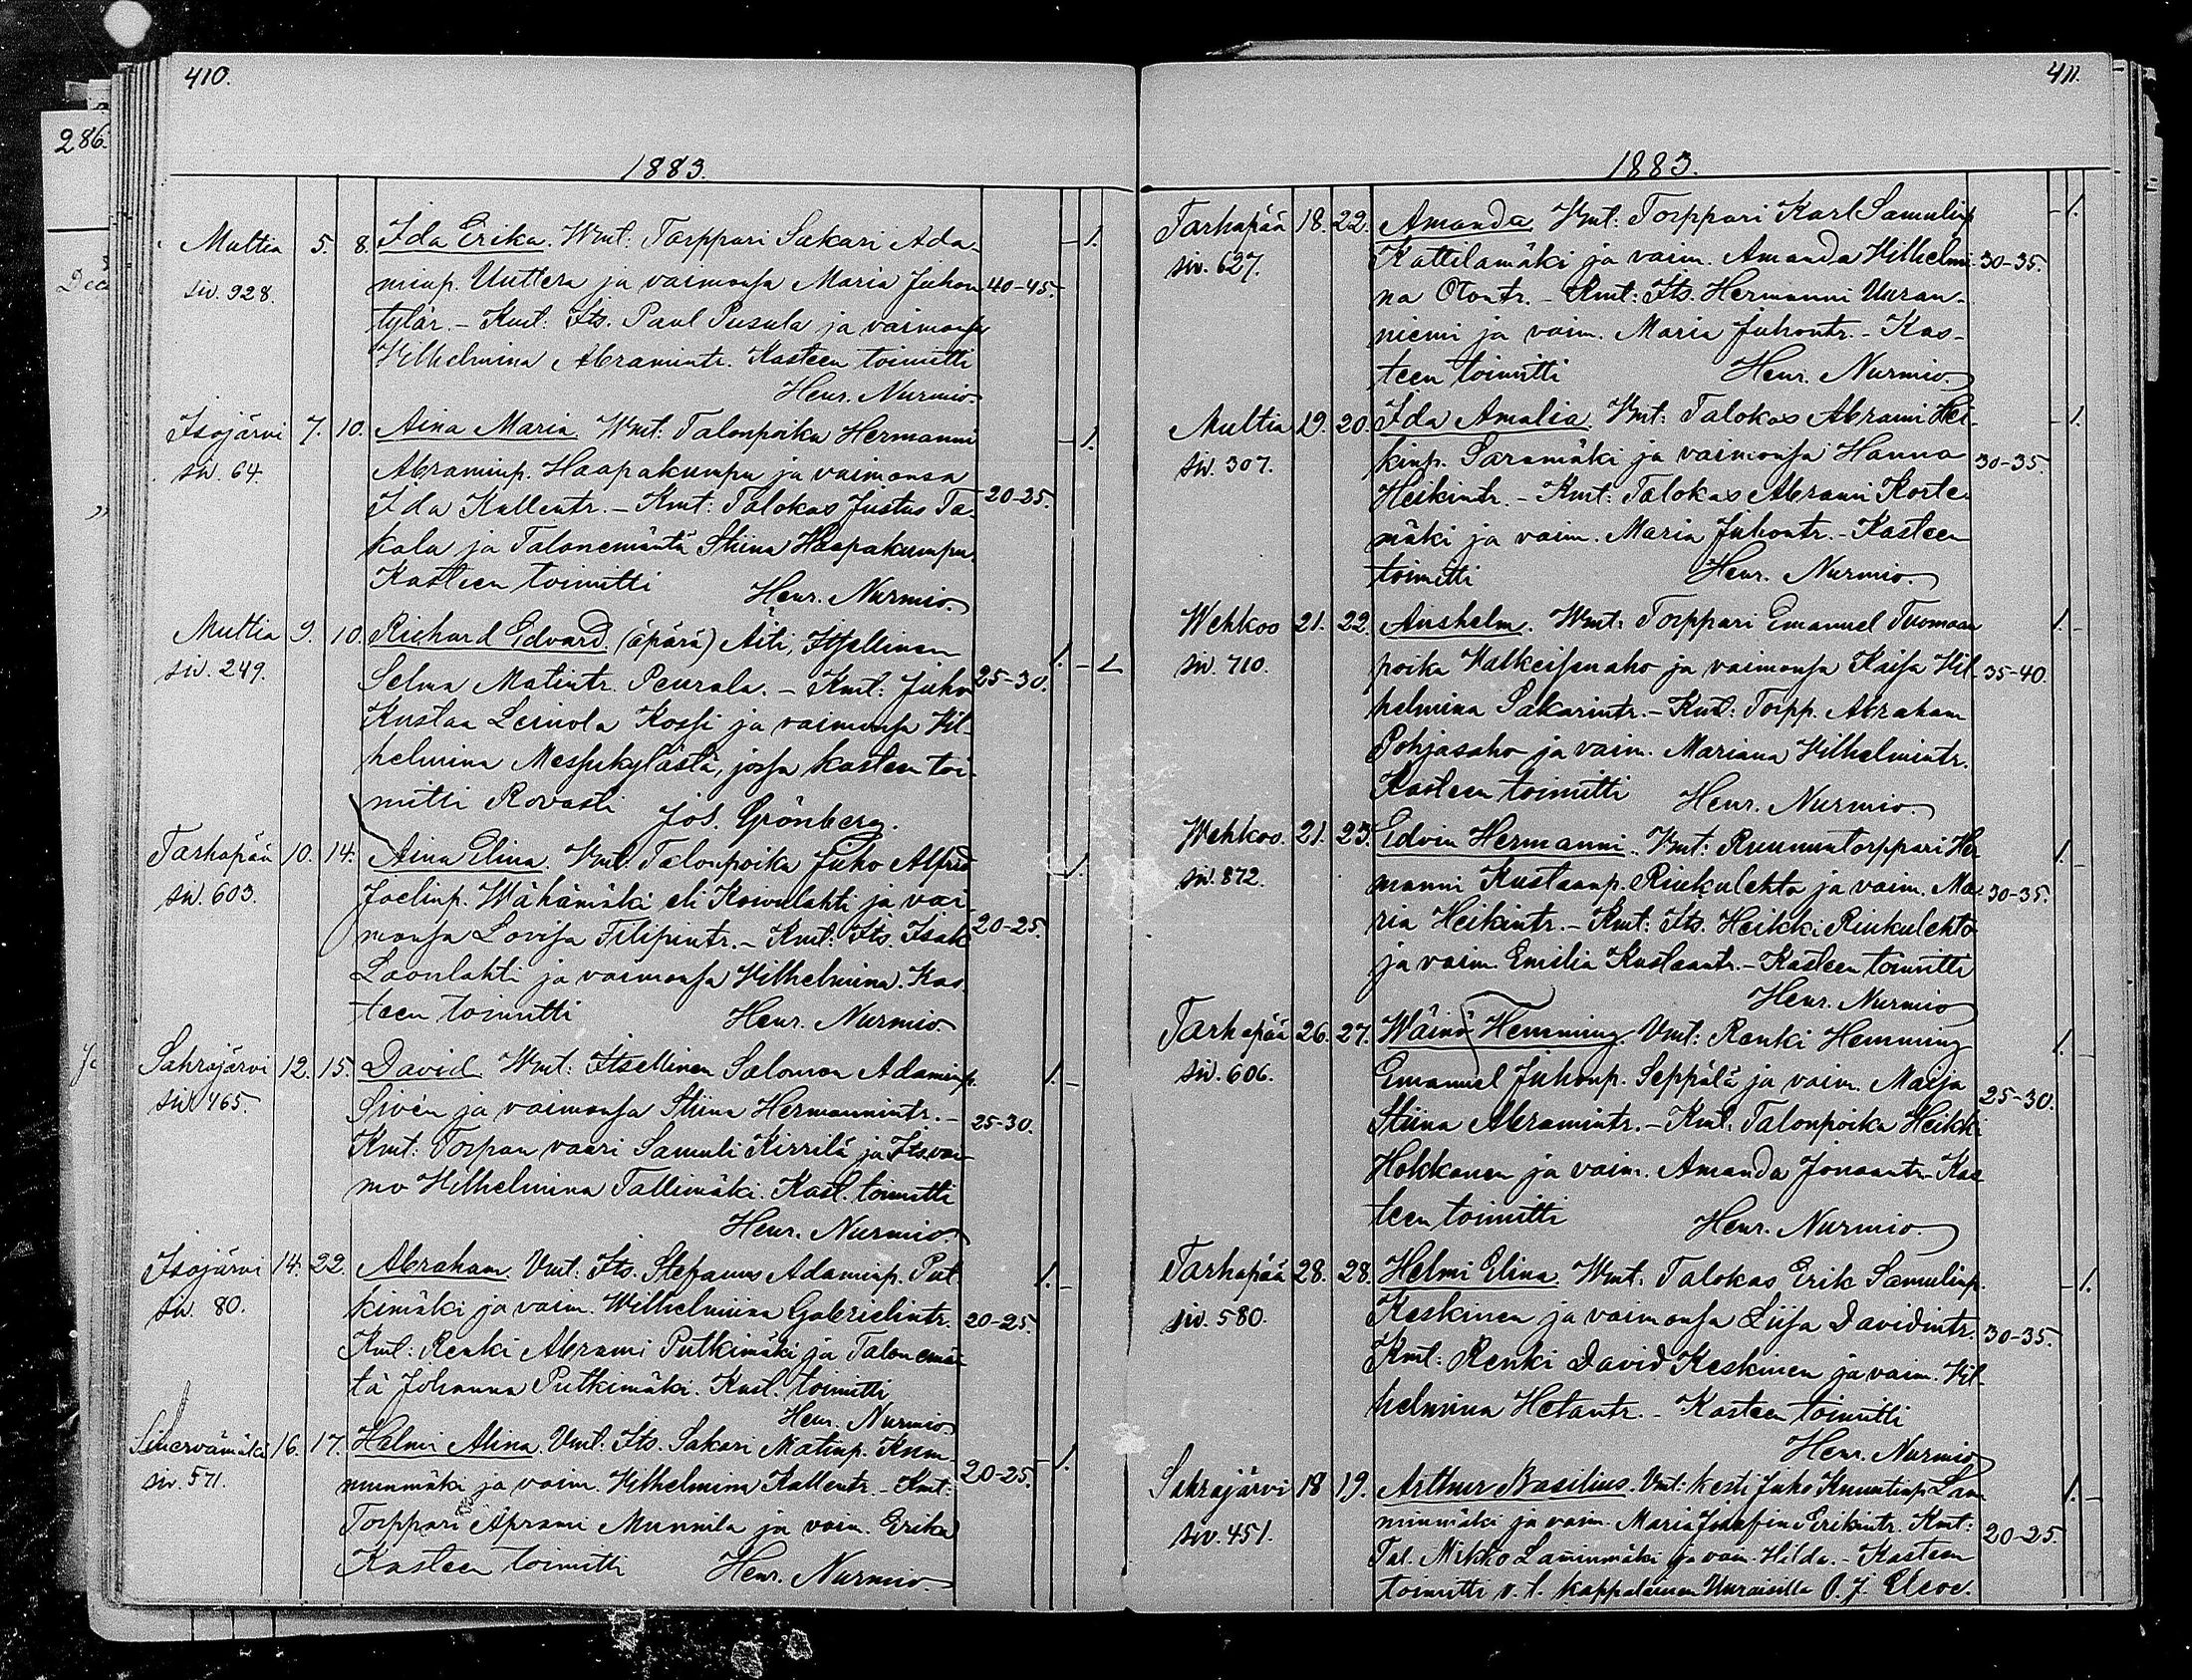 410.
286.
1883.
Multia 5. 8. Ida Erika. Wmt: Torppari Sakari Ada-
siv. 928. minp. Uuttera ja vaimonsa Maria Juhon 40-45.
tytär. - Kmt: Its. Paul Pusula ja vaimonsa
Vilhelmina Abramintr. Kasteen toimitti
Henr. Nurmio.
Isojärvi 7. 10. Aina Maria. Wmt: Talonpoika Hermanni
siv. 64. Abraminp. Haapakumpu ja vaimonsa
Ida Kallentr. - Kmt: Talokas Justus Ta- 20-25.
kala ja Talonemäntä Stiina Haapakumpu.
Kasteen toimitti Henr. Nurmio.
Multia 9. 10. Richard Edvard. (äpärä) Äiti, Itsellinen
siv. 249. Selma Matintr. Peurala. - Kmt: Juho 25-30.
Kustaa Leinola Kossi ja vaimonsa Vil-
helmina Messukylästä, jossa kasteen toi-
mitti Rovasti Jos. Grönberg.
Tarhapää 10. 14. Aina Elina. Vmt: Talonpoika Juho Alfred
siv. 603. Joelinp. Wähämäki eli Koivulahti ja vai-
monsa Lovisa Filipintr. - Kmt: Its. Isak 20-25.
Laonlahti ja vaimonsa Vilhelmina. Kas-
teen toimitti Henr. Nurmio.
Sahrajärvi 12. 15. David. Wmt: Itsellinen Salomon Adaminp.
siv. 465. Sivén ja vaimonsa Stiina Hermannintr. - 25-30.
Kmt: Torpan vaari Samuli Kirrilä ja Its. vai-
mo Vilhelmina Tallimäki. Kast. toimitti
Henr. Nurmio.
Isojärvi 14. 22. Abraham. Vmt: Its. Stefanus Adaminp. Put-
siv. 80. kimäki ja vaim. Wilhelmiina Gabrielintr. 20-25.
Kmt: Renki Abrami Putkimäki ja Talonemän-
tä Johanna Putkimäki. Kast. toimitti
Henr. Nurmio.
Sinervämäki 16. 17. Helmi Alina. Vmt: Its. Sakari Matinp. Kum-
siv. 571. munmäki ja vaim. Vilhelmina Kallentr. - Kmt: 20-25.
Torppari Aprami Munnila ja vaim. Erika
Kasteen toimitti Henr. Nurmio.
411.
1883.
Tarhapää 18. 22. Amanda. Vmt: Torppari Karl Samulinp.
siv. 627. Kattilamäki ja vaim. Amanda Vilhelmi- 30-35.
na Otontr. - Kmt: Its. Hermanni Uuran-
niemi ja vaim. Maria Juhontr. - Kas-
teen toimitti Henr. Nurmio.
Multia 19. 20. Ida Amalia. Vmt: Talokas Abrami Hei-
siv. 307. kinp. Saramäki ja vaimonsa Hanna 30-35.
Heikintr. - Kmt: Talokas Abrami Korte-
mäki ja vaim. Maria Juhontr. - Kasteen
toimitti Henr. Nurmio.
Wehkoo 21. 22. Anshelm. Wmt: Torppari Emanuel Tuomaan
siv. 710. poika Valkeisenaho ja vaimonsa Kaisa Vil- 35-40.
helmina Sakarintr. - Kmt: Torpp. Abraham
Pohjasaho ja vaim. Mariana Vilhelmintr.
Kasteen toimitti Henr. Nurmio.
Wehkoo. 21. 23. Edvin Hermanni. Vmt: Ruununtorppari Her-
siv. 872. manni Kustaanp. Riukulehto ja vaim. Ma- 30-35.
ria Heikintr. - Kmt: Its. Heikki Riukulehto
ja vaim. Emilia Kustaantr. - Kasteen toimitti
Henr. Nurmio
Tarhapää 26. 27. Wäinö Hemming. Vmt: Renki Hemming
siv. 606. Emanuel Juhonp. Seppälä ja vaim. Maija 25-30.
Stiina Abramintr. - Kmt. Talonpoika Heikki
Hokkanen ja vaim. Amanda Jonaantr. - Kas-
teen toimitti Henr. Nurmio.
Tarhapää 28. 28. Helmi Elina. Wmt: Talokas Erik Samulinp.
siv. 580. Keskinen ja vaimonsa Liisa Davidintr. 30-35.
Kmt: Renki David Keskinen ja vaim. Vil-
helmina Hetantr. - Kasteen toimitti
Henr. Nurmio
Sahrajärvi 18 19. Arthur Basilius. Vmt: kesti Juho Knuutinp. Lam-
siv. 451. minmäki ja vaim. Maria Josefina Erikintr. Kmt: 20-25.
Tal. Mikko Lamminmäki ja vaim. Hilda. - Kasteen
toimitti v. t. kappalainen Uuraisilla O. J. Cleve.